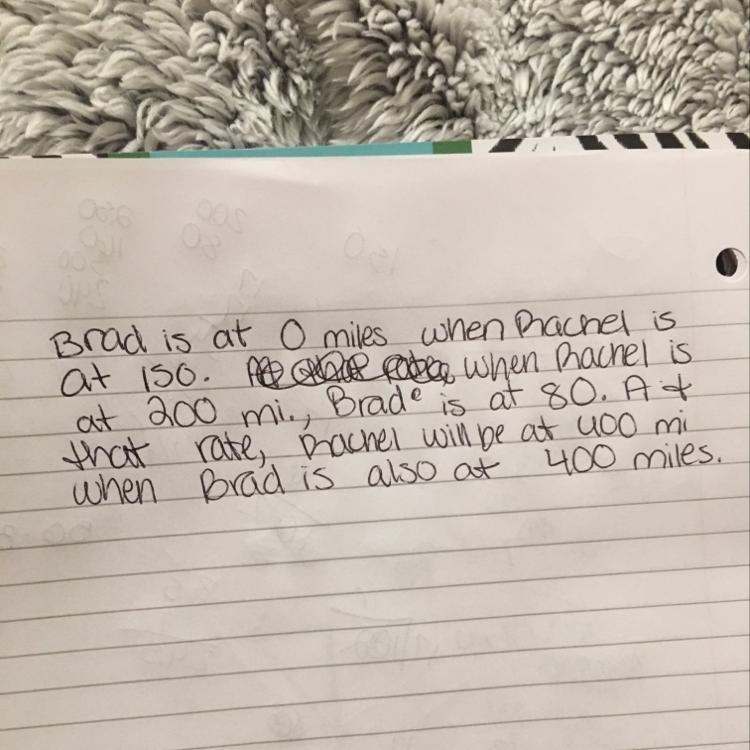 Brad is at 0 miles when Rachel is
at 150. when Rachel is
at 200 mi., Brad is at 80. At
that rate, Rachel will be at 400 mi
when Brad is also at 400 miles.